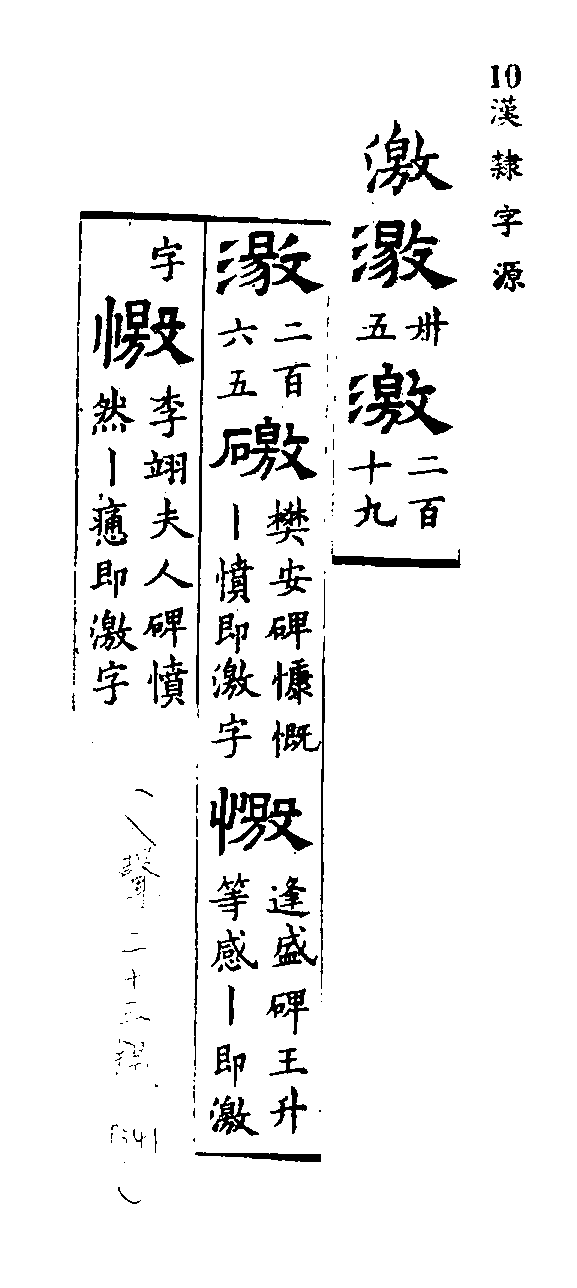 10漢隸字源
激 激 卅五 激 二百十九
激 二百六五 礉 樊安碑慷慨丨憤即激字 憿 逢盛碑王升等感丨即激
字 憿 李翊夫人碑憤然丨痛即激字
入聲二十三錫